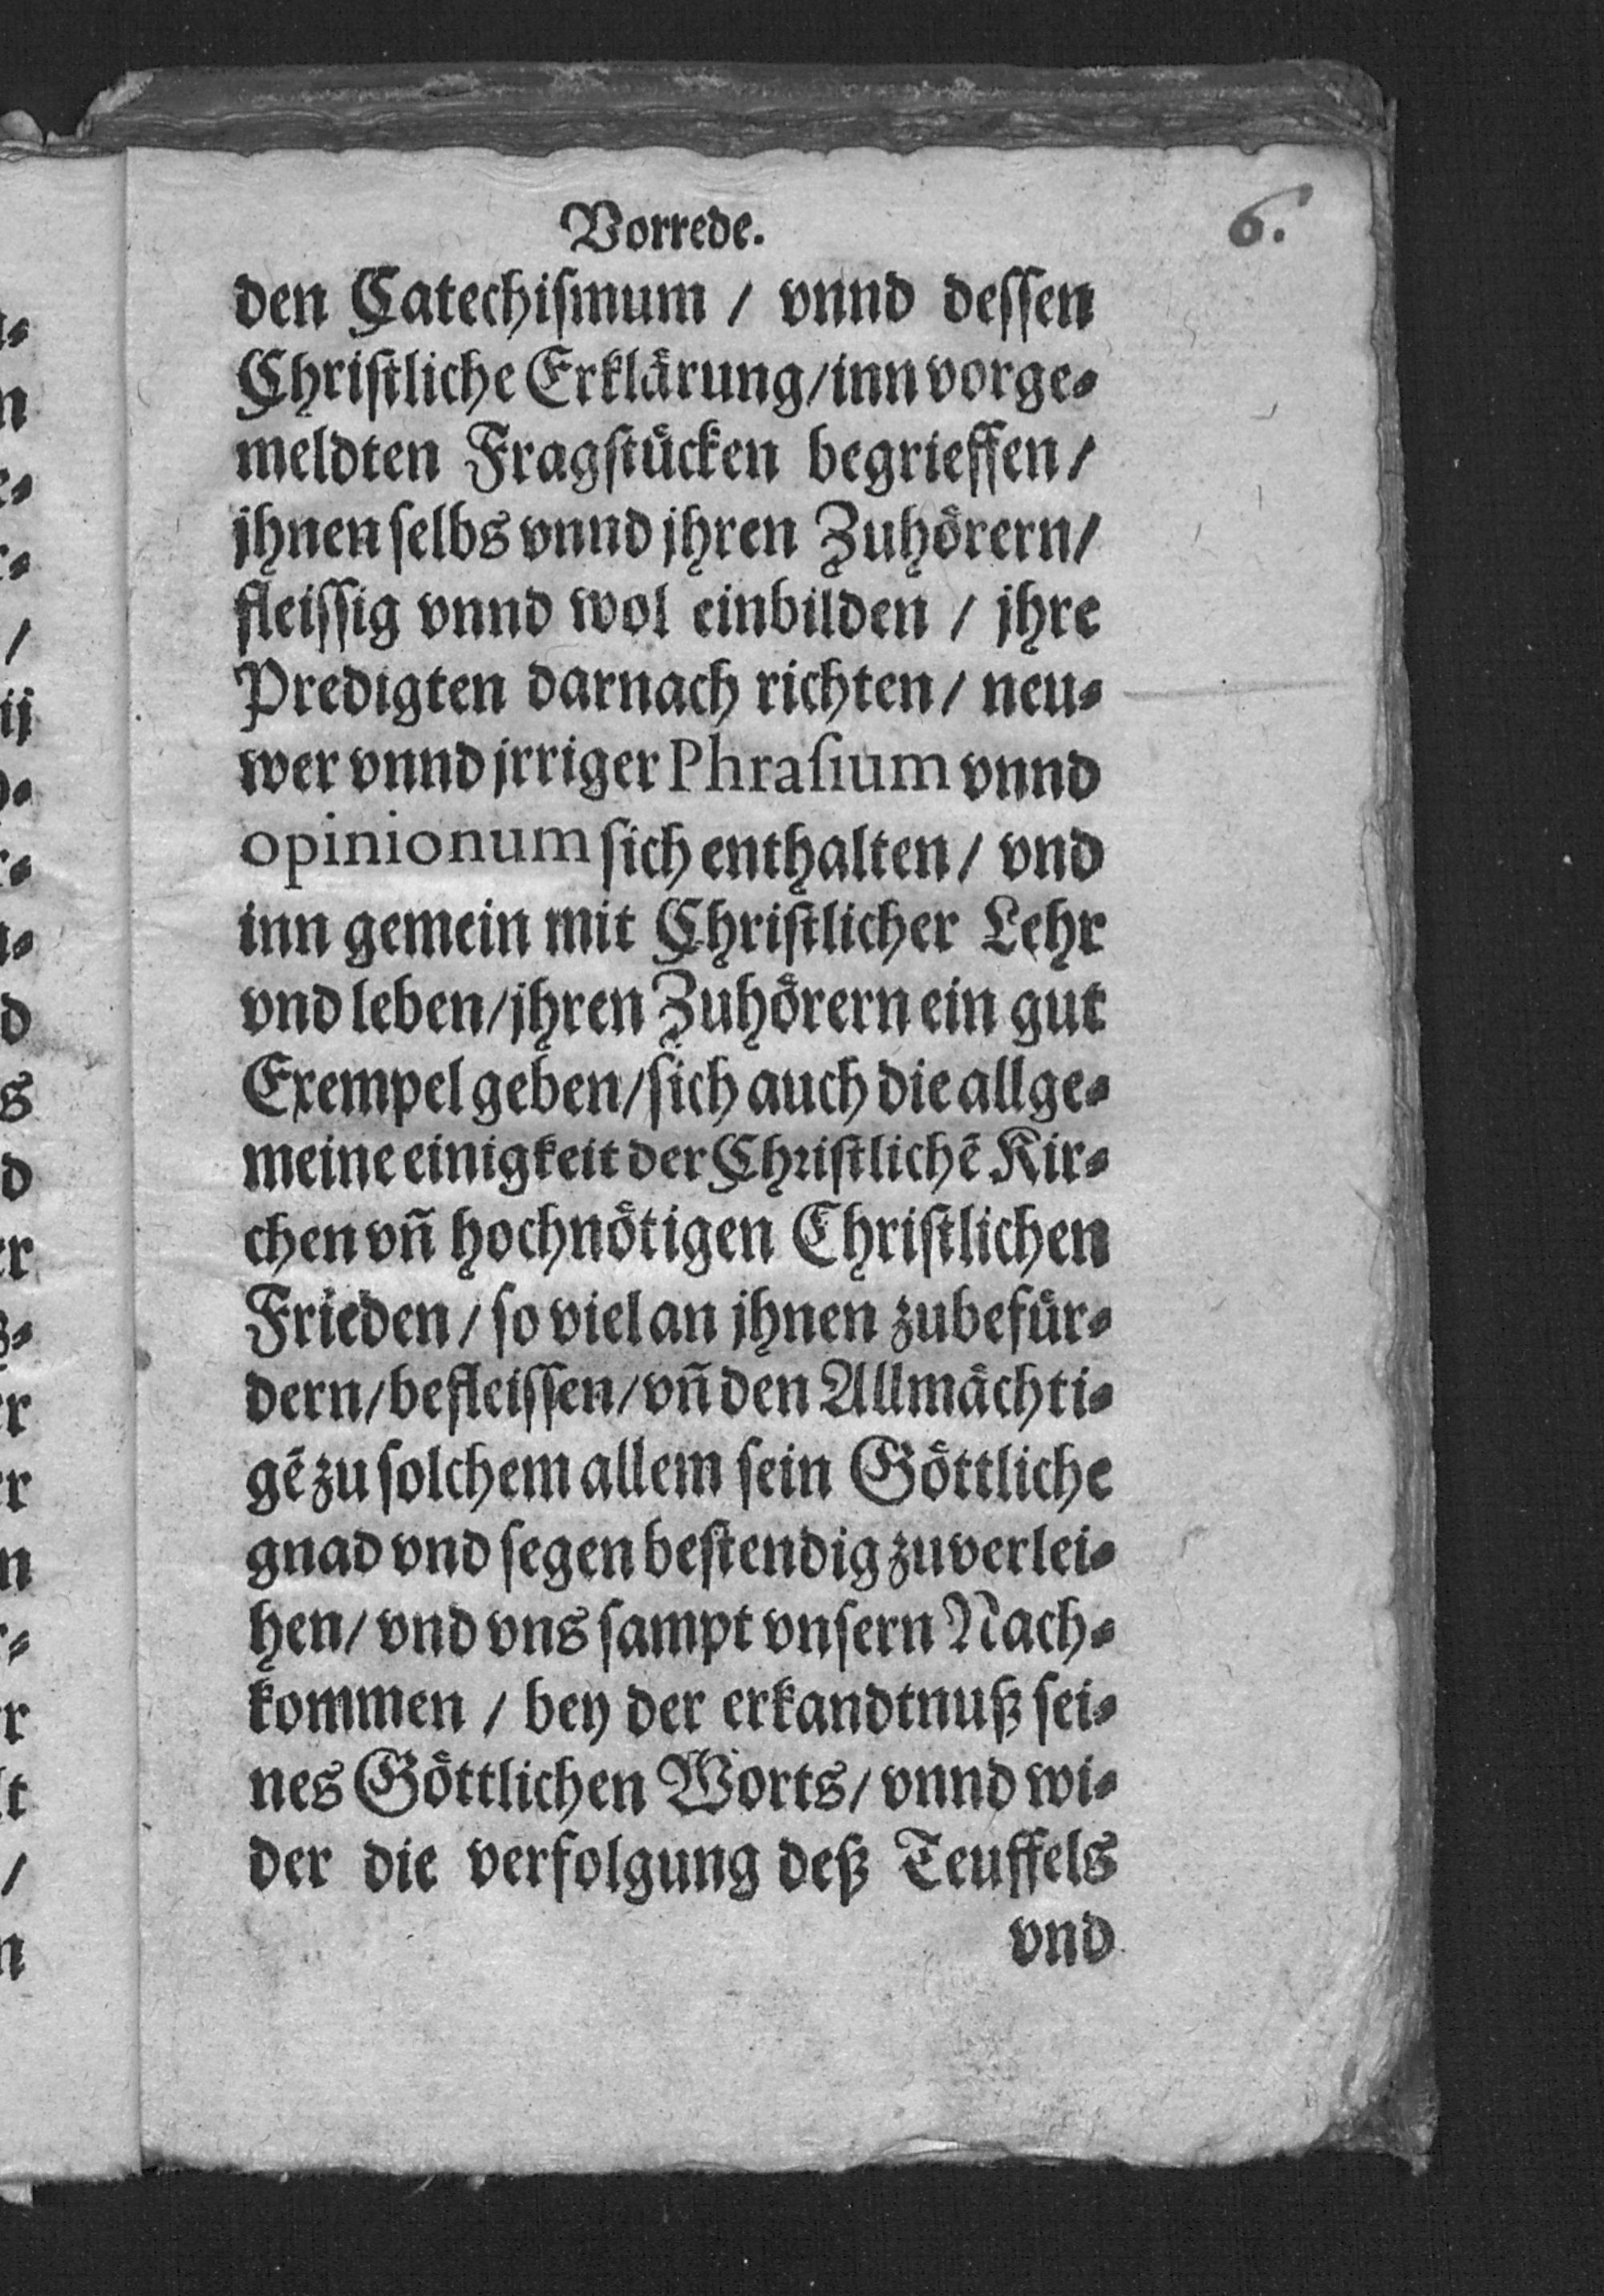 Vorrede. 6.
den Catechiſmum / vnnd deſſen
Chriſtliche Erklaͤrung/inn vorge⸗
meldten Fragſtuͤcken begrieffen/
jhnen ſelbs vnnd jhren Zuhoͤrern/
fleiſſig vnnd wol einbilden / jhre
Predigten darnach richten/ neu⸗
wer vnnd jrriger Phraſium vnnd
opinionum ſich enthalten/ vnd
inn gemein mit Chriſtlicher Lehr
vnd leben/jhren Zuhoͤrern ein gut
Exempel geben/ſich auch die allge⸗
meine einigkeit der Chriſtlichē Kir⸗
chen vñ hochnoͤtigen Chriſtlichen
Frieden/ ſo viel an jhnen zubefuͤr⸗
dern/befleiſſen/vñ den Allmaͤchti⸗
gē zu ſolchem allem ſein Goͤttliche
gnad vnd ſegen beſtendig zuverlei⸗
hen/ vnd vns ſampt vnſern Nach⸗
kommen / bey der erkandtnuß ſei⸗
nes Goͤttlichen Worts/ vnnd wi⸗
der die verfolgung deß Teuffels
vnd